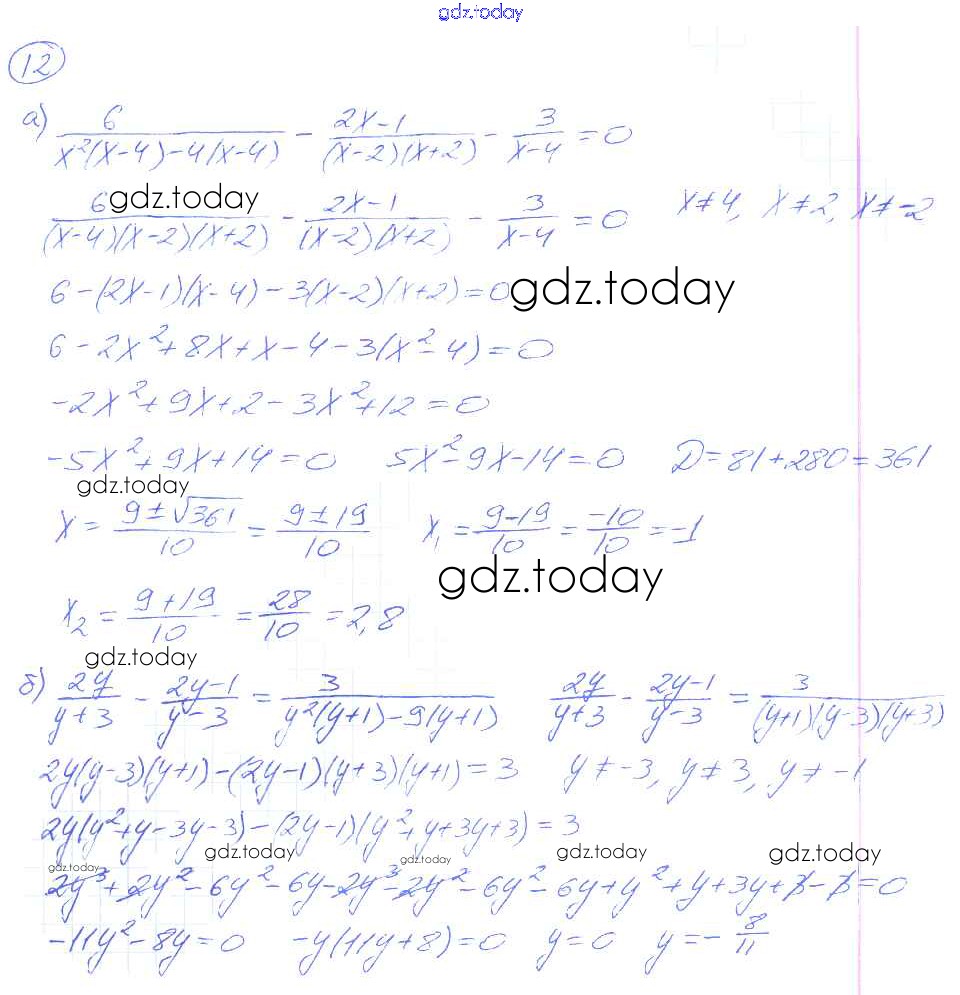 gdz.today
12
а) 6/(x²(x-4)-4(x-4)) - (2x-1)/((x-2)(x+2)) - 3/(x-4) = 0
gdz.today
6/((x-4)(x-2)(x+2)) - (2x-1)/((x-2)(x+2)) - 3/(x-4) = 0 x≠4, x≠2, x≠-2
6-(2x-1)(x-4)-3(x-2)(x+2)=0 gdz.today
6-2x²+8x+x-4-3(x²-4)=0
-2x²+9x+2-3x²+12=0
-5x²+9x+14=0 5x²-9x-14=0 D=81+280=361
gdz.today
x = (9±√361)/10 = (9±19)/10 x₁ = (9-19)/10 = -10/10 = -1
gdz.today
x₂ = (9+19)/10 = 28/10 = 2,8
gdz.today
б) 2y/(y+3) - (2y-1)/(y-3) = 3/(y²(y+1)-9(y+1)) 2y/(y+3) - (2y-1)/(y-3) = 3/((y+1)(y-3)(y+3))
2y(y-3)(y+1)-(2y-1)(y+3)(y+1)=3 y≠-3, y≠3, y≠-1
2y(y²+y-3y-3)-(2y-1)(y²+y+3y+3)=3
gdz.today gdz.today gdz.today gdz.today gdz.today
2y³+2y²-6y²-6y-2y³-2y²-6y²-6y+y²+y+3y+3-3=0
-11y²-8y=0 -y(11y+8)=0 y=0 y=-8/11